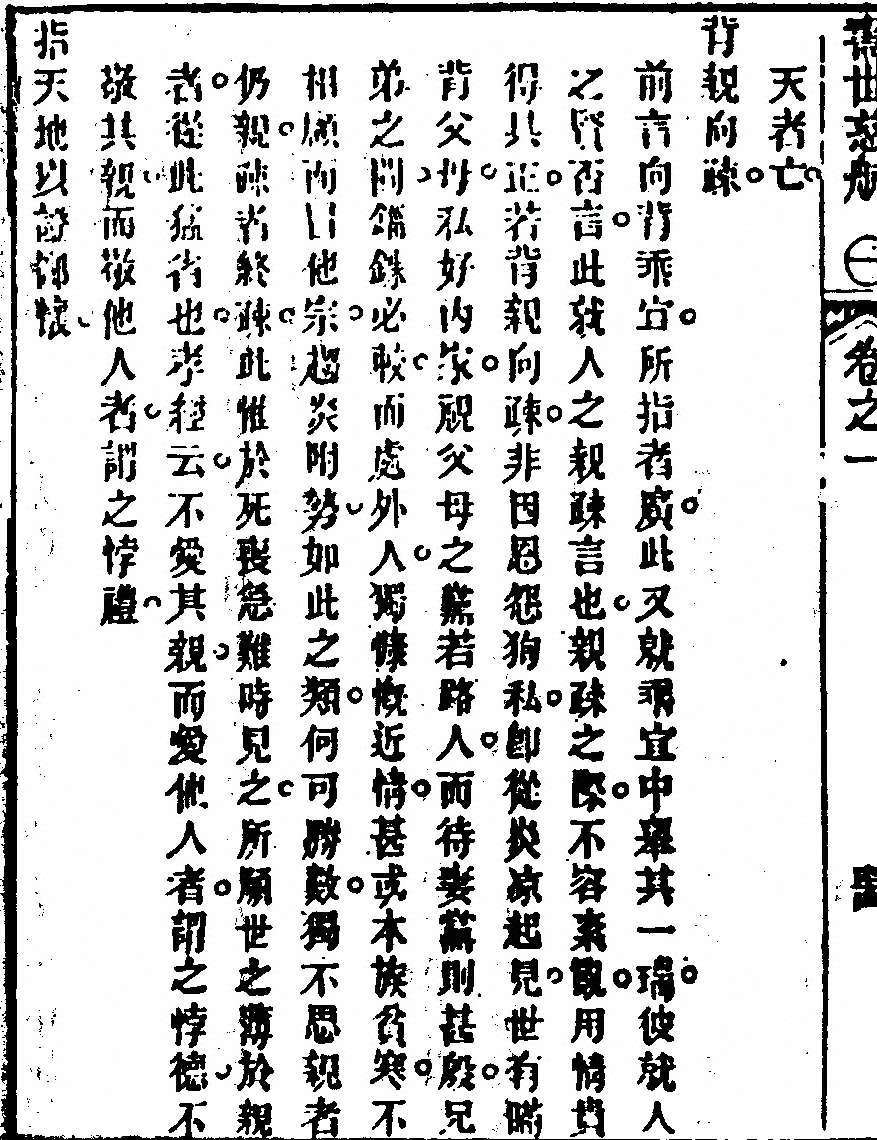 壽世慈航 ㊀ 卷之一
天者亡。
背親向疎。
前言向背乖宜。所指者廣。此又就乖宜中舉其一端。彼就人
之賢否言。此就人之親疎言也。親疎之際。不容紊亂。用情貴
得其正。若背親向疎。非因恩怨狥私。卽從炎凉起見。世有瞞
背父母。私好內家。視父母之黨若路人。而待妻黨則甚殷。兄
弟之間。錙銖必較。而處外人。獨慷慨近情。甚或本族貧寒。不
相顧而日他宗。趨炎附勢。如此之類。何可勝數。獨不思親者
仍親。疎者終疎。此惟於死喪急難時見之。所願世之薄於親
者。從此猛省也。孝經云。不愛其親。而愛他人者。謂之悖德。不
敬其親。而敬他人者。謂之悖禮。
指天地以證鄙懷。